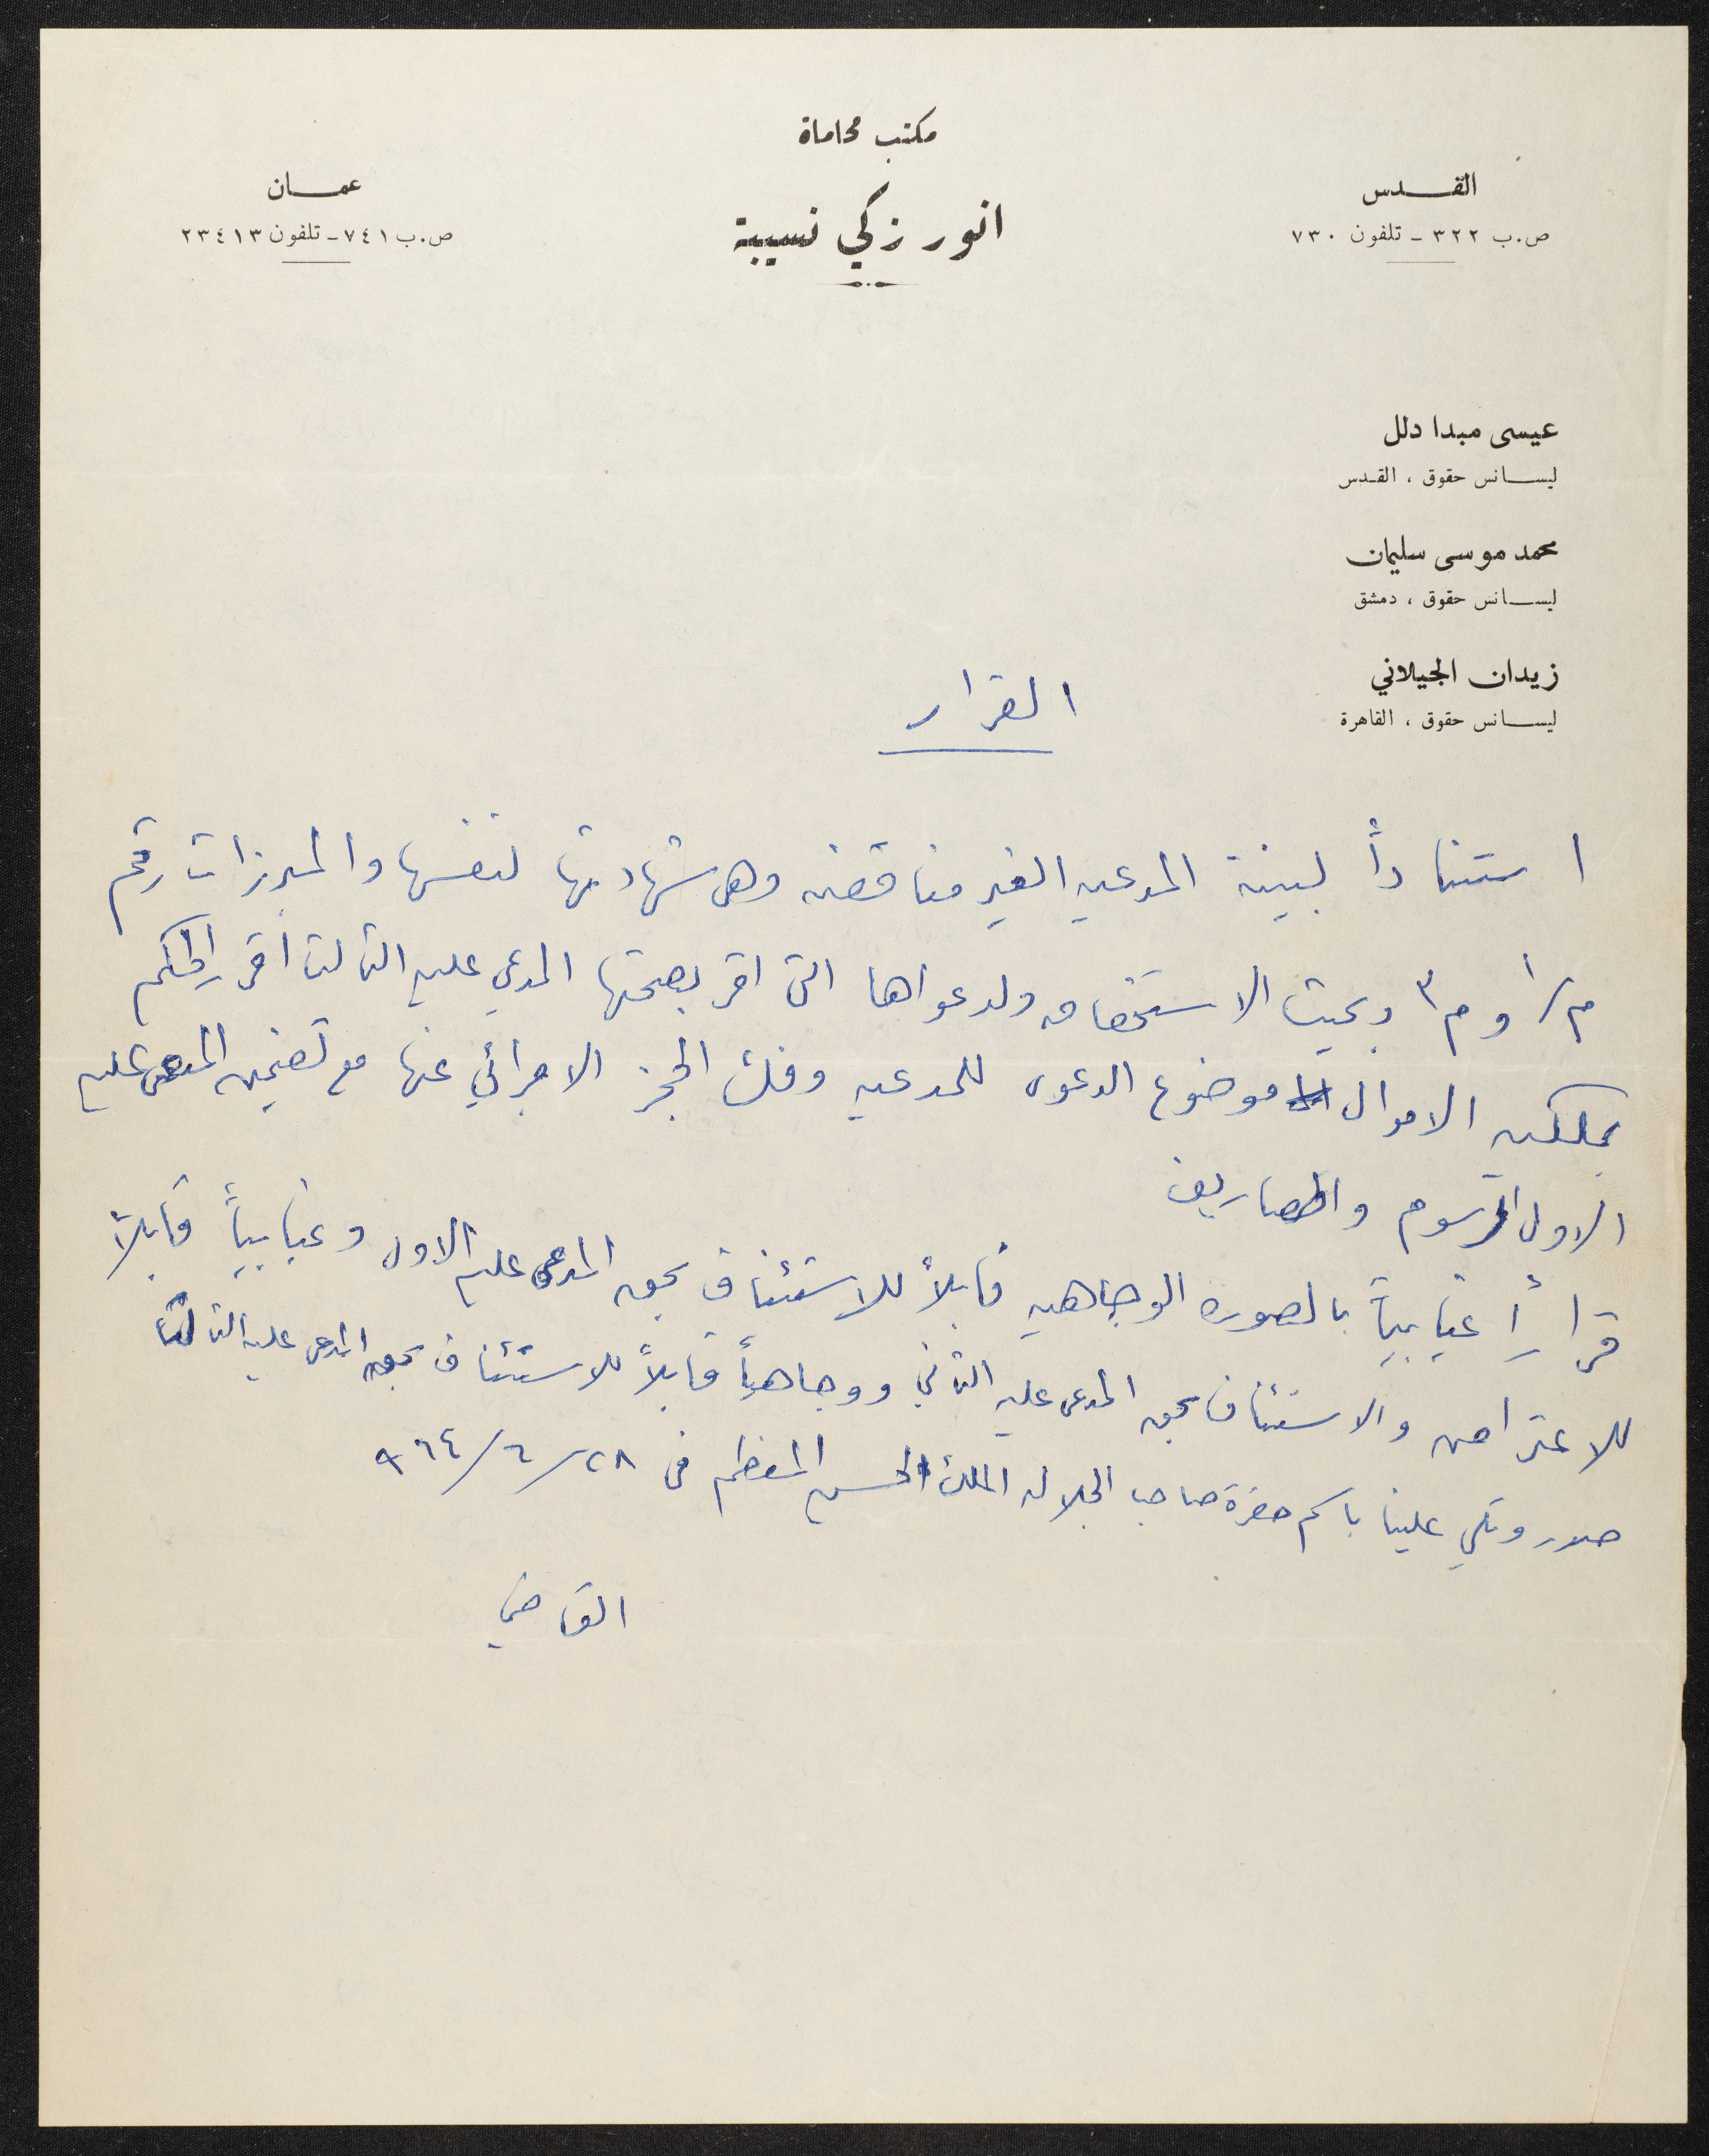 مكتب محاماة
انور زكي نسيبة
القدس
ص.ب ٣٢٢ - تلفون ٧٣٠
عمان
ص.ب ٧٤١ - تلفون ٢٣٤١٣
عيسى مبدا دلل
ليسانس حقوق ، القدس
محمد موسى سليمان
ليسانس حقوق ، دمشق
زيدان الجيلاني
ليسانس حقوق ، القاهرة
القرار
استناداً لبينة المدعيه الغير مناقضه وهي شهادتها لنفسها والمبرزات رقم
م/١ و م/٣ وبحيث الاستحقاقه ولدعواها التي اقر بصحتها المدعى عليه الثالث أقرر الحكم
بملكيه الاموال موضوع الدعوى للمدعيه وفك الحجز الاجرائي عنها مع تضمين المدعى عليه
الاول الرسوم والمصاريف
قراراً غيابياً بالصوره الوجاهيه قابلاً للاستئناف بحق المدعى عليه الاول وغيابياً قابلاً
للاعتراض والاستئناف بحق المدعى عليه الثاني ووجاهياً قابلاً للاستئناف بحق المدعى عليه الثالث
صدر وتلي علينا باسم حضرة صاحب الجلاله الملك الحسين المعظم في ٢٨/٦/٩٦٤
القاضي